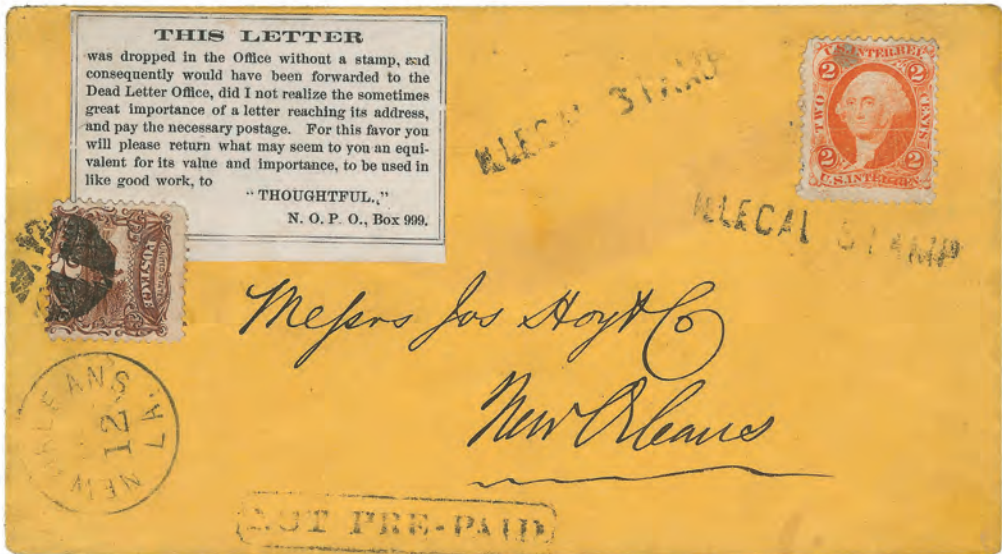 THIS LETTER
was dropped in the Office without a stamp, and
consequently would have been forwarded to the
Dead Letter Office, did I not realize the sometimes
great importance of a letter reaching its address,
and pay the necessary postage. For this favor you
will please return what may seem to you an equi-
valent for its value and importance, to be used in
like good work, to
"THOUGHTFUL.,"
N. O. P. O., Box 999.
ILLEGAL STAMP
U.S. INTER. REV.
2 2
TWO CENTS
2 2
U.S. INTER. REV.
ILLEGAL STAMP
POSTAGE
Messrs Jos Hoyt & Co
New Orleans
NEW ORLEANS
12
LA.
NOT PRE-PAID